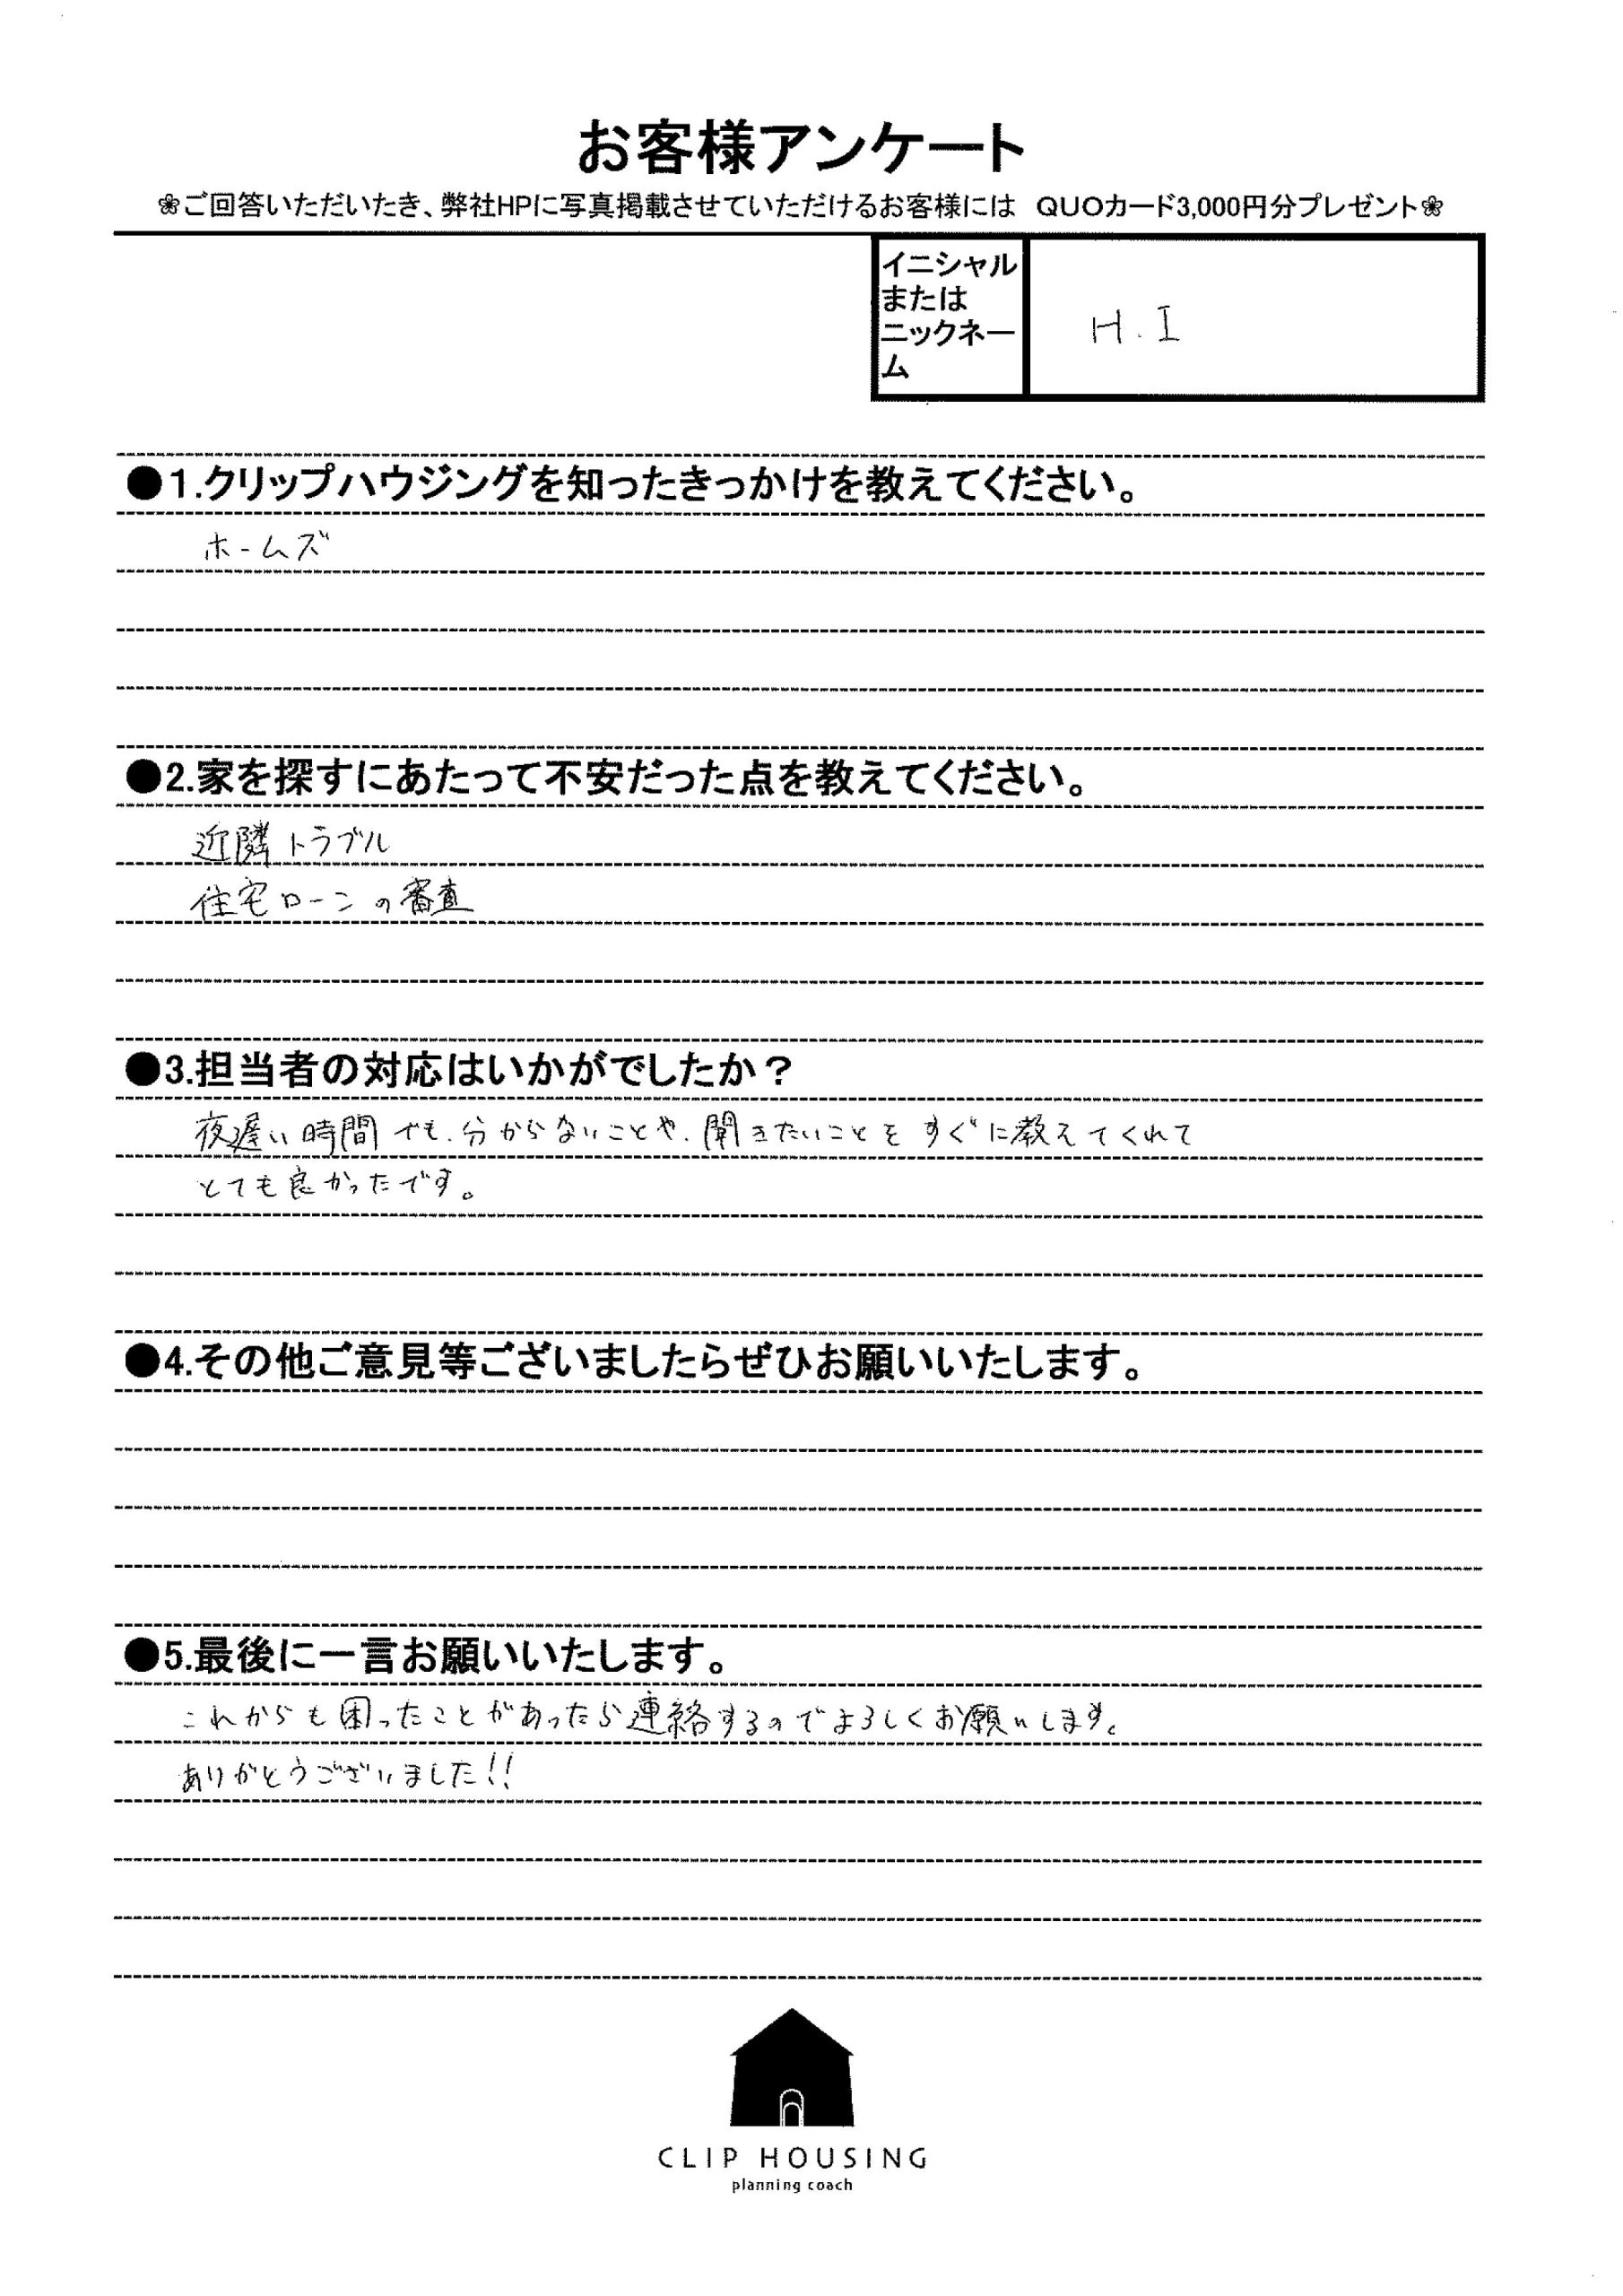 お客様アンケート
❀ご回答いただいたき、弊社HPに写真掲載させていただけるお客様には QUOカード3,000円分プレゼント❀
イニシャル
または
ニックネー
ム
H.I
●1.クリップハウジングを知ったきっかけを教えてください。
ホームズ
●2.家を探すにあたって不安だった点を教えてください。
近隣トラブル
住宅ローンの審査
●3.担当者の対応はいかがでしたか?
夜遅い時間でも、分からないことや、聞きたいことをすぐに教えてくれて
とても良かったです。
●4.その他ご意見等ございましたらぜひお願いいたします。
●5.最後に一言お願いいたします。
これからも困ったことがあったら連絡するのでよろしくお願いします。
ありがとうございました!!
CLIP HOUSING
planning coach